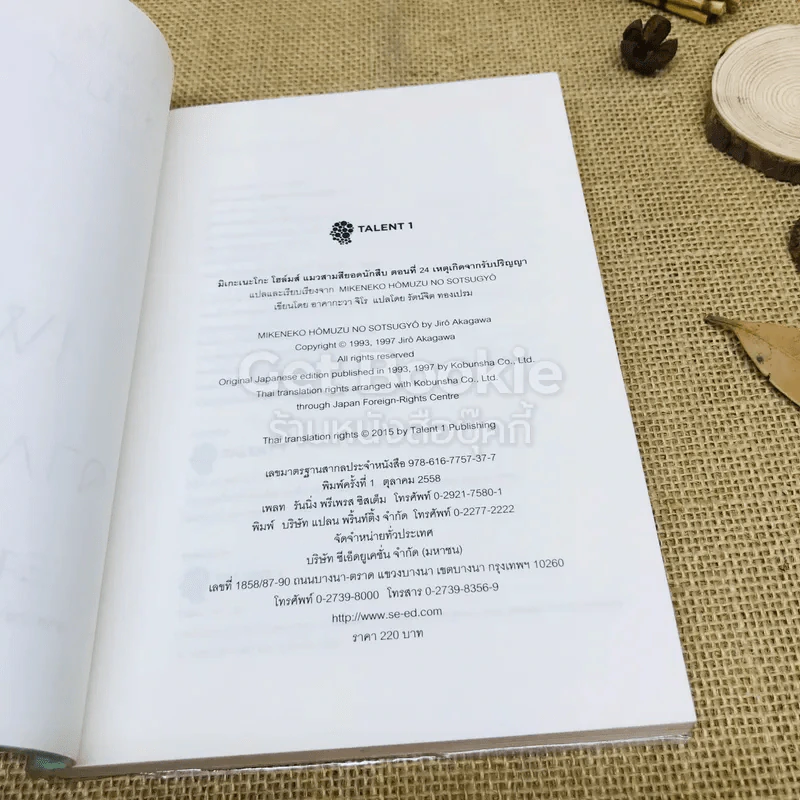 TALENT 1
มิเกะเนะโกะ โฮล์มส์ แมวสามสียอดนักสืบ ตอนที่ 24 เหตุเกิดจากรับปริญญา
แปลและเรียบเรียงจาก MIKENEKO HŌMUZU NO SOTSUGYŌ
เขียนโดย อาคากะวา จิโร แปลโดย รัตน์จิต ทองเปรม
MIKENEKO HŌMUZU NO SOTSUGYŌ by Jirō Akagawa
Copyright © 1993, 1997 Jirō Akagawa
All rights reserved
Original Japanese edition published in 1993, 1997 by Kobunsha Co., Ltd.
Thai translation rights arranged with Kobunsha Co., Ltd.
through Japan Foreign-Rights Centre
Get Bookie
ร้านหนังสือบุ๊คกี้
Thai translation rights © 2015 by Talent 1 Publishing
เลขมาตรฐานสากลประจำหนังสือ 978-616-7757-37-7
พิมพ์ครั้งที่ 1 ตุลาคม 2558
เพลท รันนิ่ง พรีเพรส ซิสเต็ม โทรศัพท์ 0-2921-7580-1
พิมพ์ บริษัท แปลน พริ้นท์ติ้ง จำกัด โทรศัพท์ 0-2277-2222
จัดจำหน่ายทั่วประเทศ
บริษัท ซีเอ็ดยูเคชั่น จำกัด (มหาชน)
เลขที่ 1858/87-90 ถนนบางนา-ตราด แขวงบางนา เขตบางนา กรุงเทพฯ 10260
โทรศัพท์ 0-2739-8000 โทรสาร 0-2739-8356-9
http://www.se-ed.com
ราคา 220 บาท